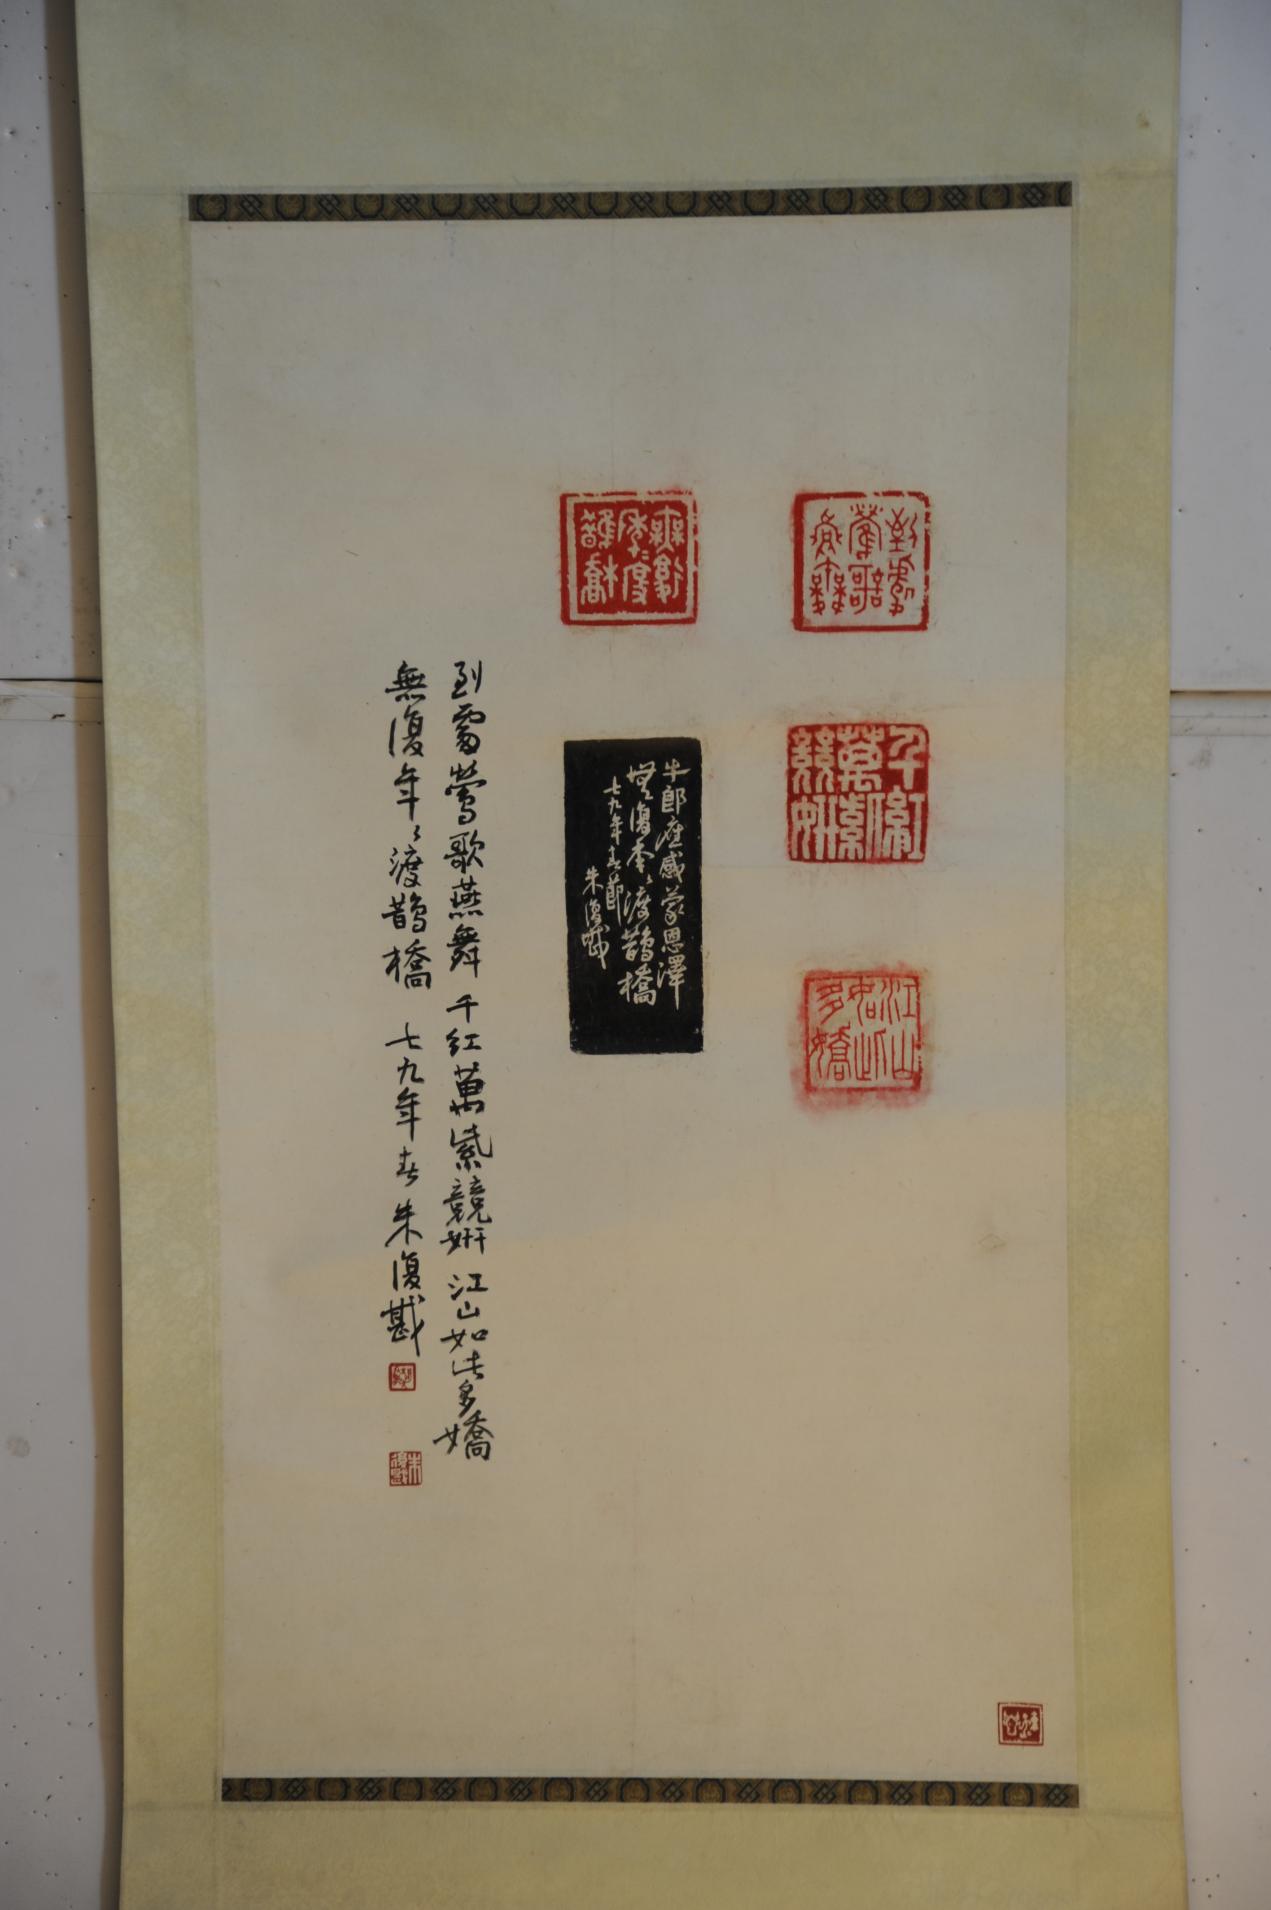 到處
鶯歌
燕舞
千紅
萬紫
競妍
江山
如此
多嬌
無復
年=度
鵲橋
牛郎應感蒙恩澤
無復年、渡鵲橋
七九年春節
朱復戡
到處鶯歌燕舞 千紅萬紫競妍 江山如此多嬌
無復年、渡鵲橋 七九年春 朱復戡
朱
復戡